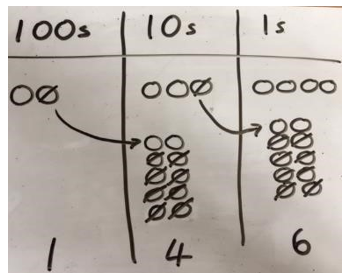 100s 10s 1s
1 4 6